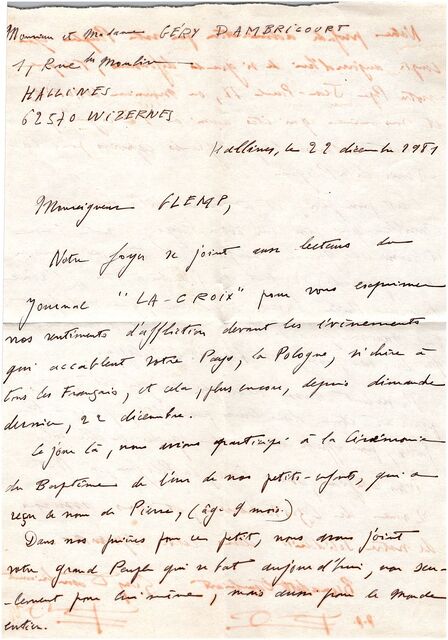 Monsieur et Madame GÉRY DAMBRICOURT
17 Rue du Moulin
HALLINES
62570 WIZERNES
Hallines, le 22 décembre 1981
Monseigneur GLEMP,
Notre foyer se joint aux lecteurs du
Journal "LA-CROIX" pour vous exprimer
nos sentiments d'affliction devant les évènements
qui accablent votre Pays, la Pologne, si chère à
tous les Français, et cela, plus encore, depuis dimanche
dernier, 22 décembre.
Ce jour là, nous avions participé à la Cérémonie
du Baptême de l'un de nos petits-enfants, qui a
reçu le nom de Pierre, (âgé 9 mois.)
Dans nos prières pour ce petit, nous avons joint
votre grand Peuple qui se bat aujourd'hui, non seu-
-lement pour lui-même, mais aussi pour le monde
entier.